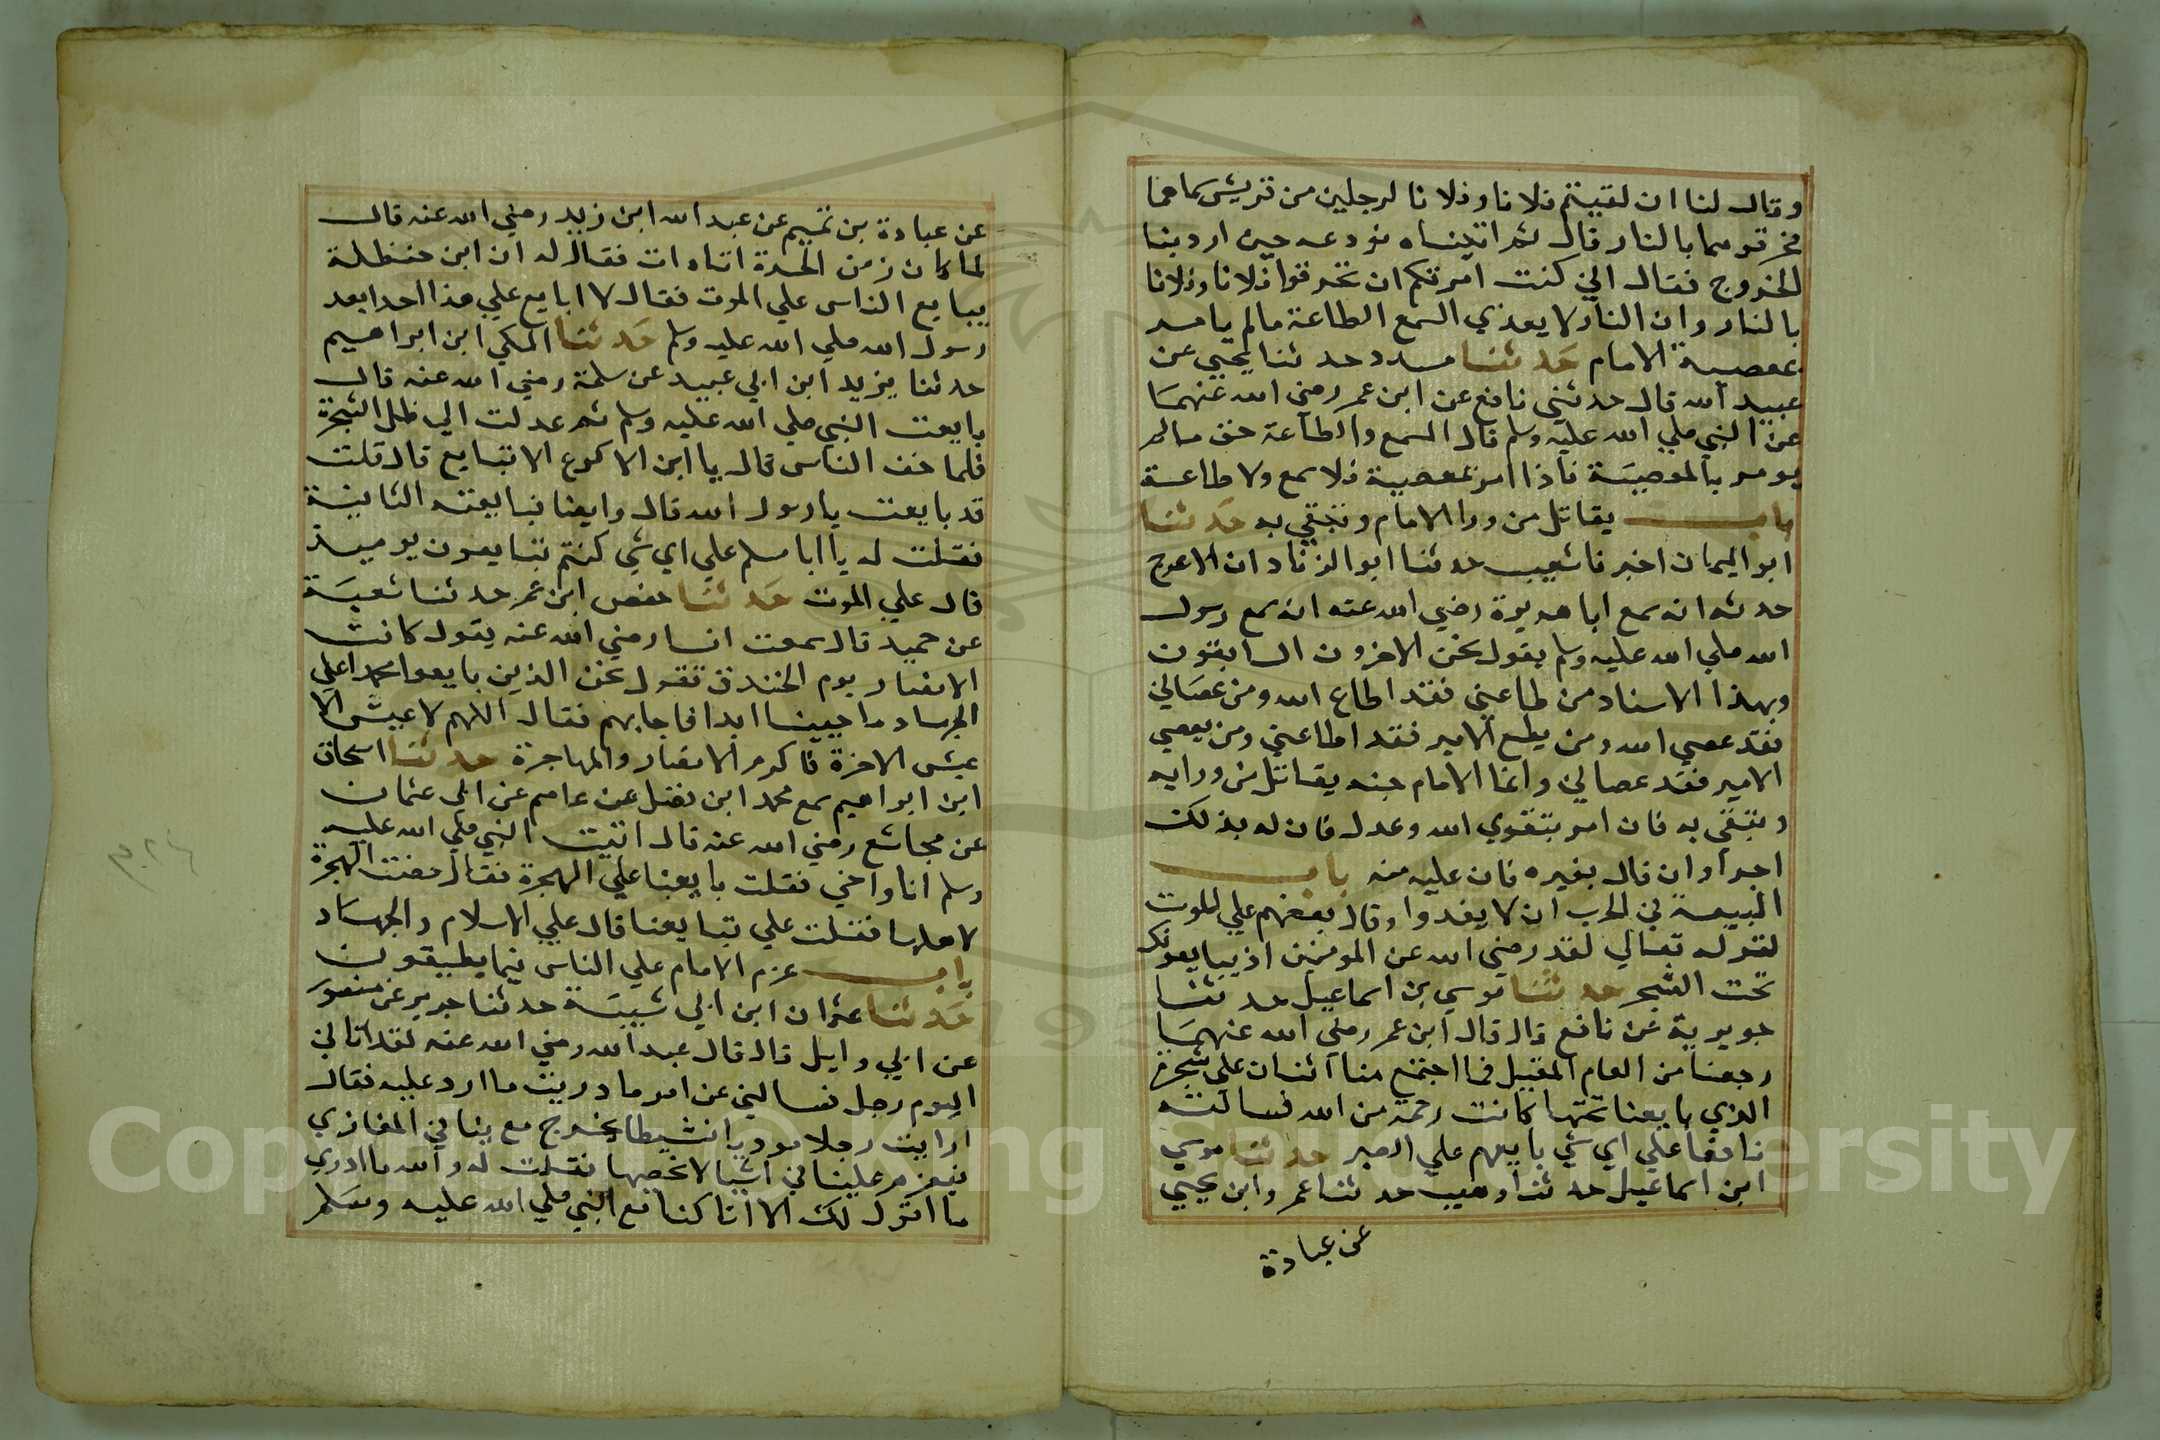 وقال لنا ان لقيتم فلانا وفلانا لرجلين من قريش سماهما
فحرقوهما بالنار قال ثم اتيناه نودعه حين اردنا
الخروج فقال اني كنت امرتكم ان تحرقوا فلانا وفلانا
بالنار وان النار لا يعذب السمع الطاعة مالم يامر
بمعصية الامام حدثنا مسدد حدثنا يحيي عن
عبيد الله قال حدثني نافع عن ابن عمر رضي الله عنهما
عن النبي صلي الله عليه وسلم قال السمع والطاعة حق مالم
يومر بالمعصية فاذا امر بمعصية فلا سمع ولا طاعة
باب يقاتل من ورا الامام ويتقي به حدثنا
ابو اليمان اخبرنا شعيب حدثنا ابو الزناد ان الاعرج
حدثه انه سمع ابا هريرة رضي الله عنه انه سمع رسول
الله صلي الله عليه وسلم يقول نحن الاخرون السابقون
وبهذا الاسناد من طاعني فقد اطاع الله ومن عصاني
فقد عصي الله ومن يطع الامير فقد اطاعني ومن يعصي
الامير فقد عصاني وانما الامام جنه يقاتل من ورايه
ويتقي به فان امر بتقوي الله وعدل فان له بذلك
اجرا وان قال بغيره فان عليه منه باب
البيعة في الحرب ان لا يفروا وقال بعضهم علي الموت
لقوله تعالي لقد رضي الله عن المومنين اذ يبايعونك
تحت الشجر حدثنا موسي بن اسماعيل حدثنا
جويرية عن نافع قال قال ابن عمر رضي الله عنهما
رجعنا من العام المقبل فما اجتمع منا اثنان علي شجرة
الذي بايعنا تحتها كانت رحمة من الله فسالته
نافعا علي اي شي بايعهم علي الصبر حدثنا موسي
ابن اسماعيل حدثنا وهيب حدثنا عمر وابن يحيي
عن عبادة
عن عبادة بن تميم عن عبد الله ابن زيد رضي الله عنه قال
لما كان زمن الحرة اتاه ات فقال له ان ابن حنظلة
يبايع الناس علي الموت فقال لا ابايع علي هذا احدا بعد
رسول الله صلي الله عليه وسلم حدثنا المكي ابن ابراهيم
حدثنا يزيد ابن ابي عبيد عن سلمة رضي الله عنه قال
بايعت النبي صلي الله عليه وسلم ثم عدلت الي ظل الشجرة
فلما خف الناس قال يا ابن الاكوع الا تبايع قال قلت
قد بايعت يا رسول الله قال وايضا فبايعته الثانية
فقلت له يا ابا مسلم علي اي شي كنتم تبايعون يوميذ
قال علي الموت حدثنا حفص ابن عمر حدثنا شعبة
عن حميد قال سمعت انسا رضي الله عنه يقول كانت
الانصار يوم الخندق تقول نحن الذين بايعوا محمدا علي
الجهاد ما حيينا ابدا فاجابهم فقال اللهم لا عيش الا
عيش الاخرة فاكرم الانصار والمهاجرة حدثنا اسحاق
ابن ابراهيم سمع محمد ابن فضل عن عاصم عن ابي عثمان
عن مجاشع رضي الله عنه قال اتيت النبي صلي الله عليه
وسلم انا واخي فقلت بايعنا علي الهجرة فقال مضت الهجرة
لاهلها فقلت علي تبايعنا قال علي الاسلام والجهاد
باب عزم الامام علي الناس فيما يطيقون
حدثنا عثمان ابن ابي شيبة حدثنا جرير عن منصور
عن ابي وايل قال قال عبد الله رضي الله عنه لقد اتاني
اليوم رجل فسالني عن امر ما دريت ما ارد عليه فقال
ارايت رجلا موديا نشيطا يخرج مع بنا في المغازي
فيعزم علينا في اشيا لا نحصيها فقلت له والله ما ادري
ما اقول لك الا انا كنا مع النبي صلي الله عليه وسلم
Copyright © King Saud University
1957